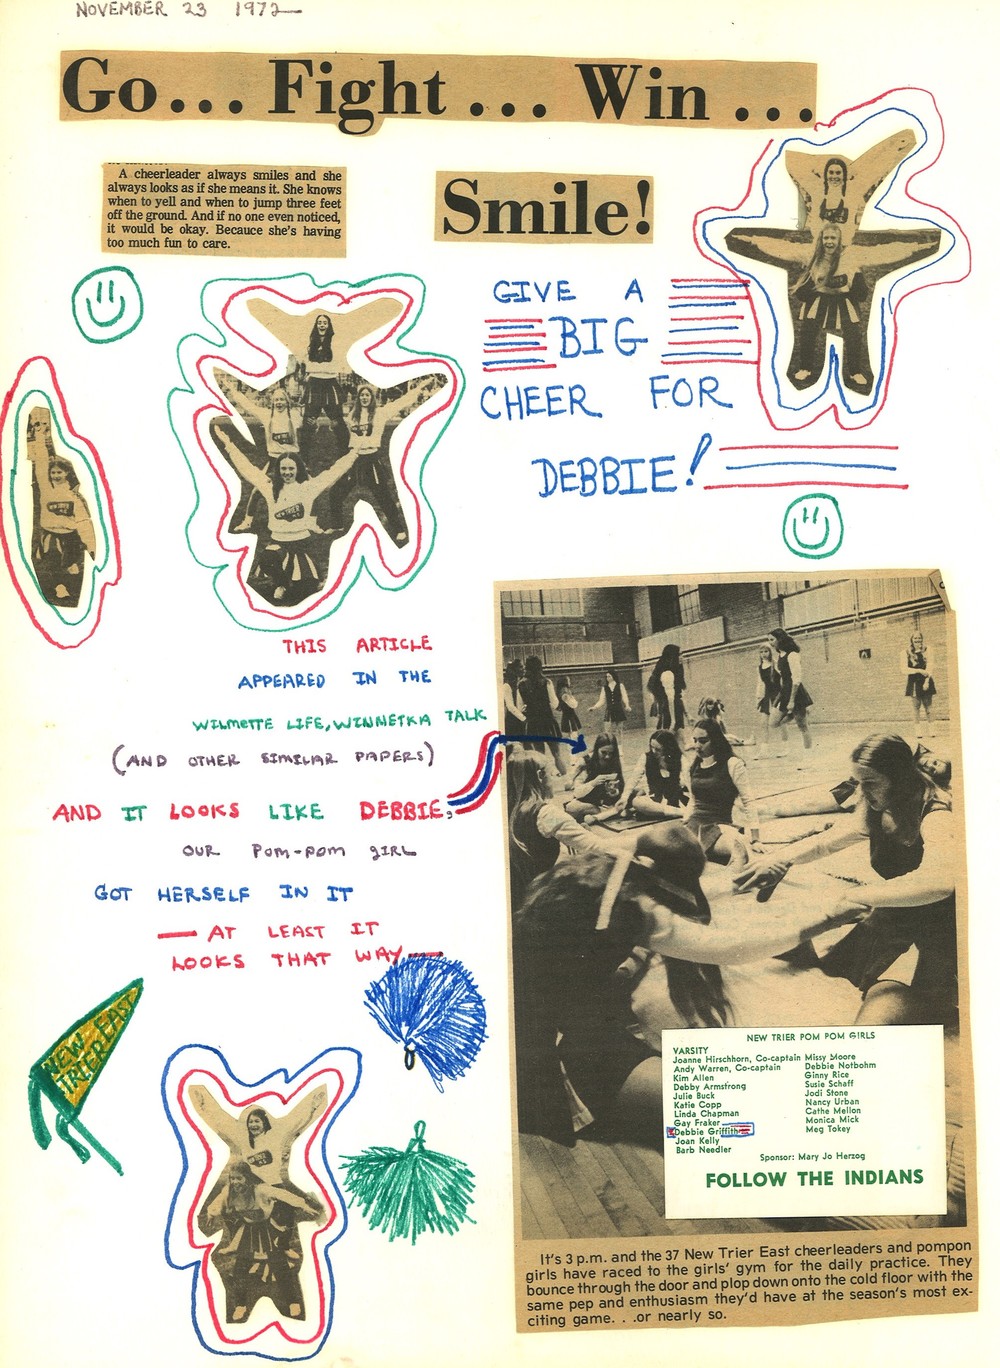 NOVEMBER 23 1972
Go... Fight ... Win ...
A cheerleader always smiles and she
always looks as if she means it. She knows
when to yell and when to jump three feet
off the ground. And if no one even noticed,
it would be okay. Becauce she's having
too much fun to care.
Smile!
GIVE A
BIG
CHEER FOR
DEBBIE!
THIS ARTICLE
APPEARED IN THE
WILMETTE LIFE, WINNETKA TALK
(AND OTHER SIMILIAR PAPERS)
AND IT LOOKS LIKE DEBBIE,
OUR POM-POM GIRL
GOT HERSELF IN IT
— AT LEAST IT
LOOKS THAT WAY —
NEW TRIER EAST
NEW TRIER POM POM GIRLS
VARSITY
Joanne Hirschhorn, Co-captain
Andy Warren, Co-captain
Kim Allen
Debby Armstrong
Julie Buck
Katie Copp
Linda Chapman
Gay Fraker
Debbie Griffith
Joan Kelly
Barb Needler
Missy Moore
Debbie Notbohm
Ginny Rice
Susie Schaff
Jodi Stone
Nancy Urban
Cathe Mellon
Monica Mick
Meg Tokey
Sponsor: Mary Jo Herzog
FOLLOW THE INDIANS
It's 3 p.m. and the 37 New Trier East cheerleaders and pompon
girls have raced to the girls' gym for the daily practice. They
bounce through the door and plop down onto the cold floor with the
same pep and enthusiasm they'd have at the season's most ex-
citing game. . .or nearly so.